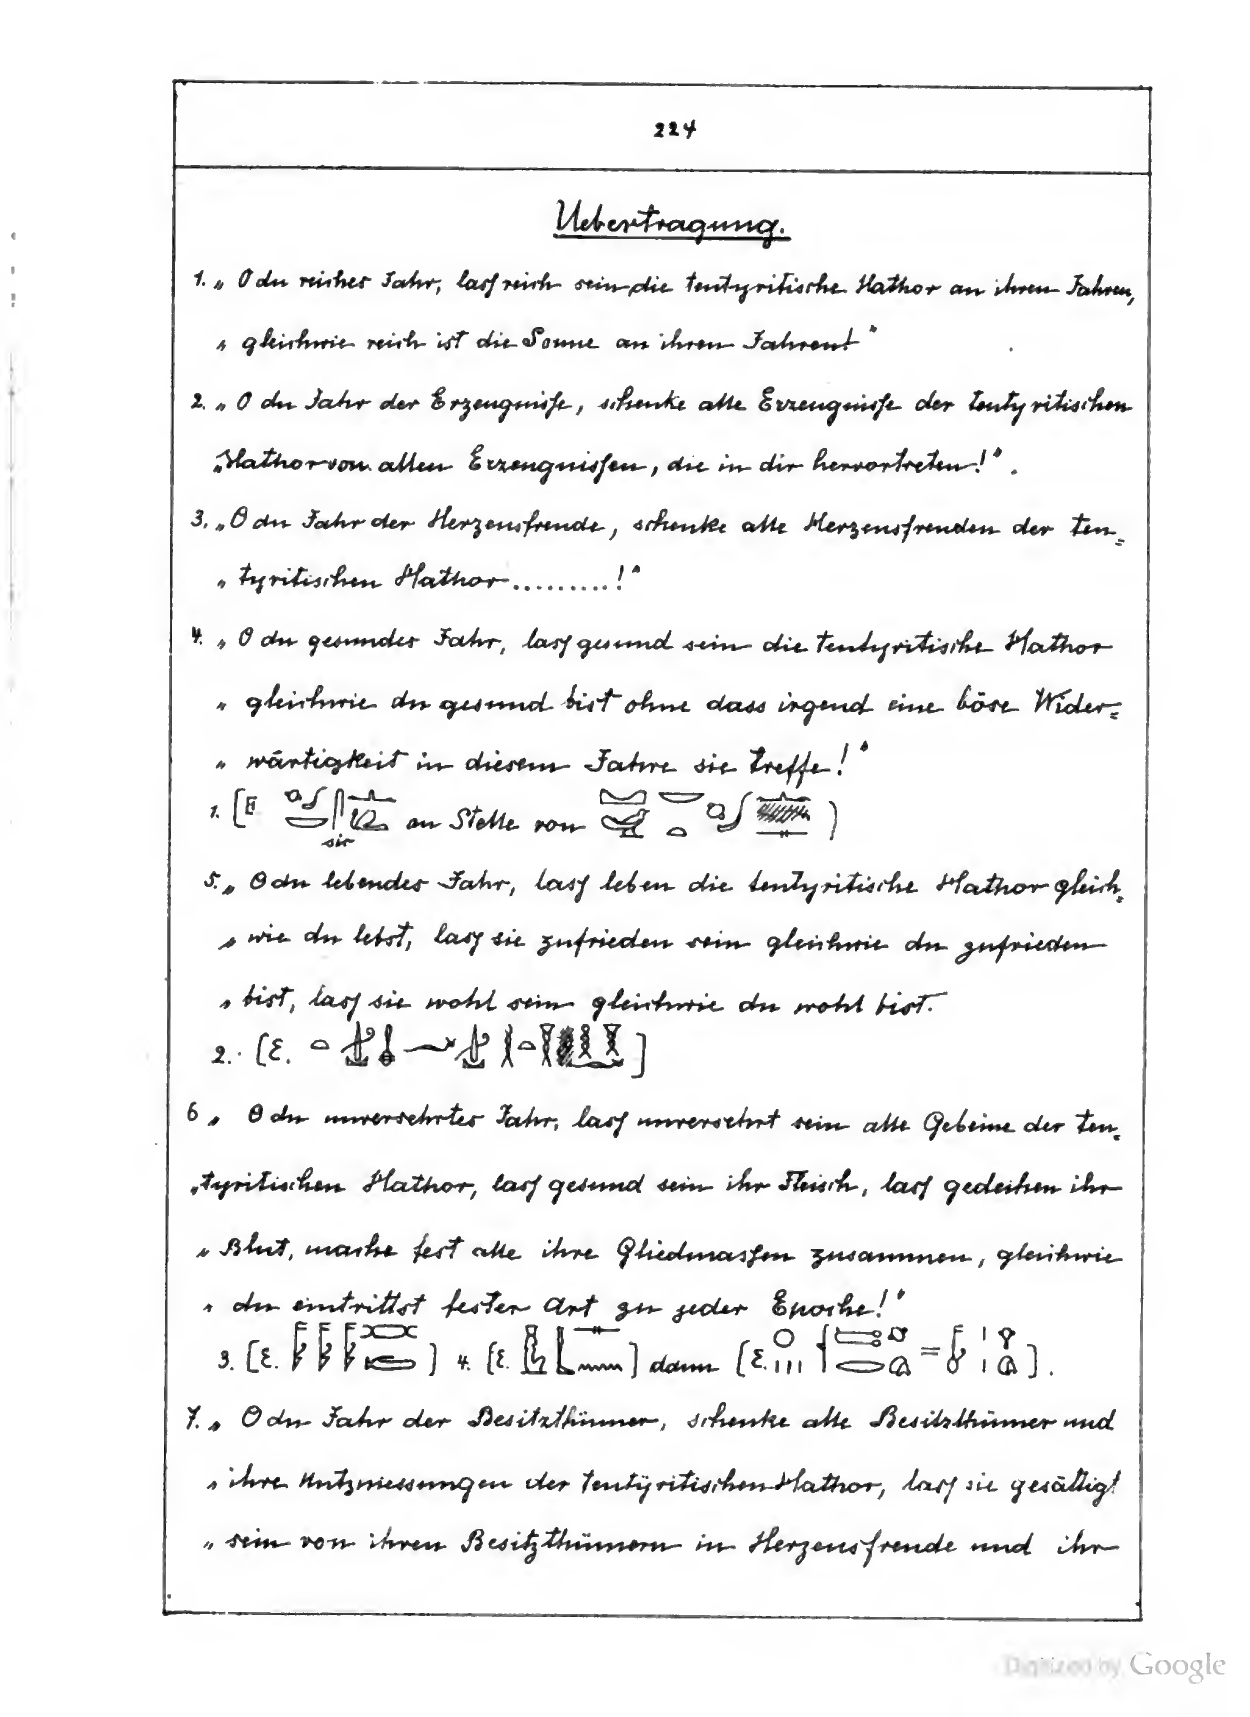 224
Uebertragung.
1. „ O du reiches Jahr, lass reich sein die tentyritische Hathor an ihren Jahren,
„ gleichwie reich ist die Sonne an ihren Jahren!“
2. „ O du Jahr der Erzeugnisse, schenke alle Erzeugnisse der tentyritischen
„Hathor von allen Erzeugnissen, die in dir hervortreten!“.
3. „O du Jahr der Herzensfreude, schenke alle Herzensfreuden der ten=
„ tyritischen Hathor.........!“
4. „ O du gesundes Jahr, lass gesund sein die tentyritische Hathor
„ gleichwie du gesund bist ohne dass irgend eine böse Wider=
„ wärtigkeit in diesem Jahre sie treffe!“
1. [E an Stelle von )
sic
5. „ O du lebendes Jahr, lass leben die tentyritische Hathor gleich=
„ wie du lebst, lass sie zufrieden sein gleichwie du zufrieden
„ bist, lass sie wohl sein gleichwie du wohl bist.
2. [E. ]
6 „ O du unversehrtes Jahr, lass unversehrt sein alle Gebeine der ten=
„tyritischen Hathor, lass gesund sein ihr Fleisch, lass gedeihen ihr
„ Blut, mache fest alle ihre Gliedmassen zusammen, gleichwie
„ du eintrittst fester Art zu jeder Epoche!“
3. [E. ] 4. [E. ] dann [E. = ].
7. „ O du Jahr der Besitzthümer, schenke alle Besitzthümer und
„ ihre Nutzniessungen der tentyritischen Hathor, lass sie gesättigt
„ sein von ihren Besitzthümern in Herzensfreude und ihr
Digitized by Google